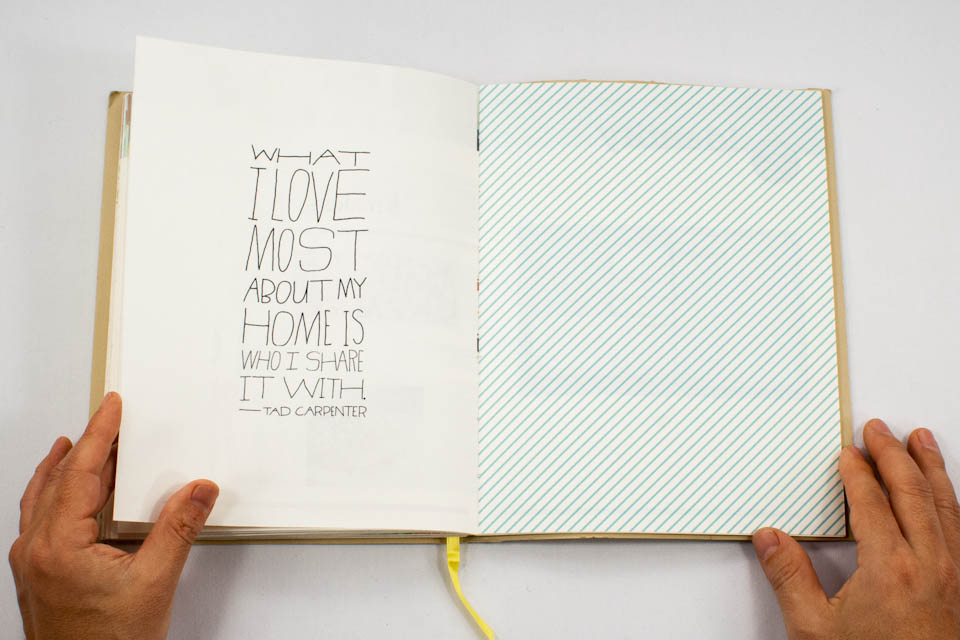 WHAT
I LOVE
MOST
ABOUT MY
HOME IS
WHO I SHARE
IT WITH.
— TAD CARPENTER